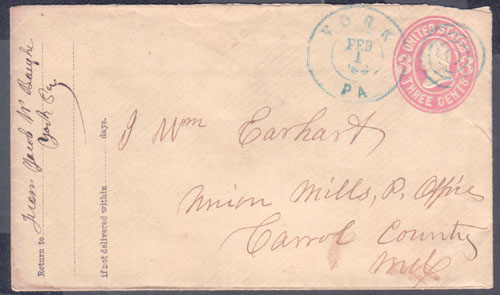 Return to From Jacob W Baughr
York Pa
If not delivered within days.
YORK
FEB
1
PA
UNITED STATES
3 3
THREE CENTS
J Wm Earhart
Union Mills, P. Office
Carrol County
Md